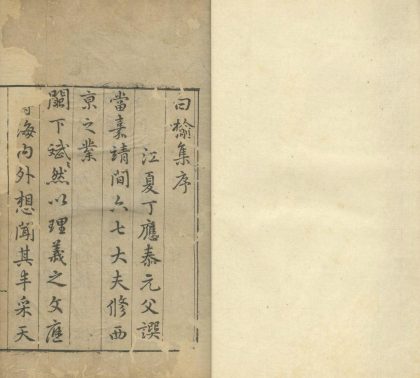 曰榆集序
江夏丁應泰元父譔
當嘉靖間六七大夫修西
京之業
闕下斌然以理義之文應
海內外想聞其丰采天